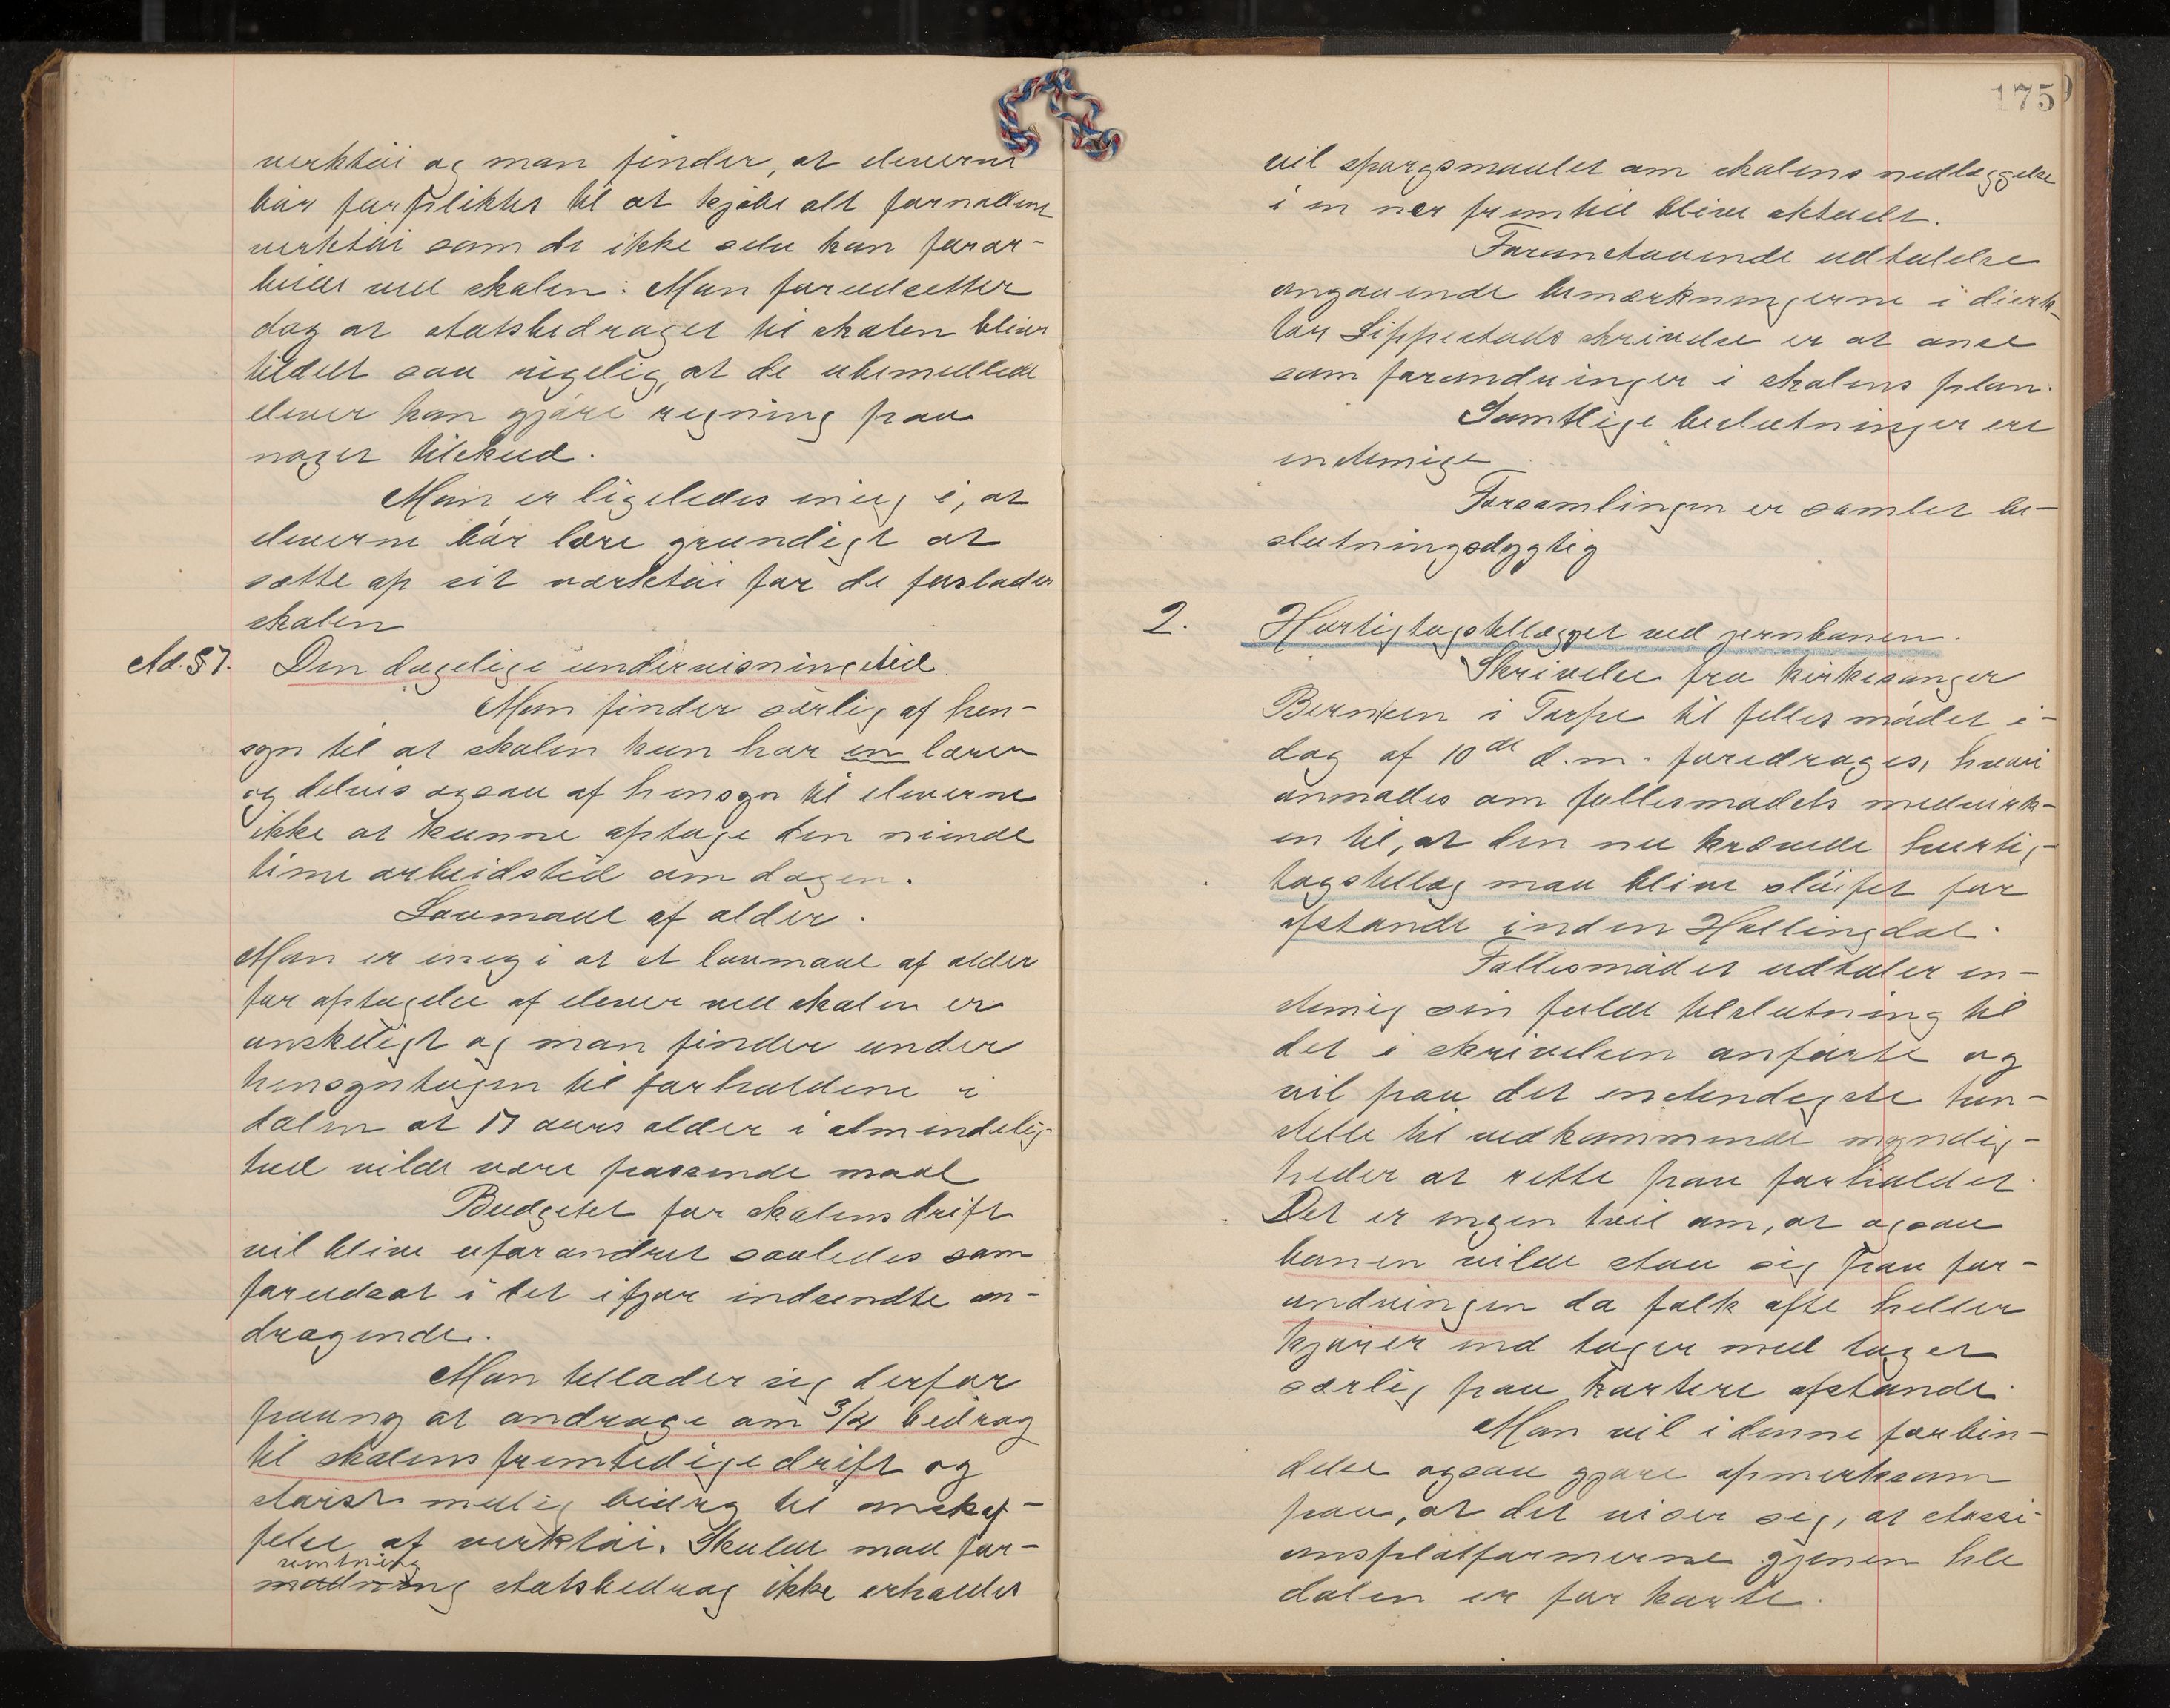 verktøi og man finder, at eleverne
bør forpliktes til at kjøbe alt fornødent
verktøi som de ikke selv kan forar-
beide ved skolen. Man forudsetter
dog at statsbidraget til skolen bliver
tildelt saa rigelig, at de ubemedlede
elever kan gjøre regning paa
noget tilskud.
Man er ligeledes enig i, at
eleverne bør lære grundigt at
sætte op sit værktøi før de forlader
skolen
Ad. § 7. Den dagelige undervisningstid.
Man finder særlig af hen-
syn til at skolen kun har en lærer
og delvis ogsaa af hensyn til eleverne
ikke at kunne optage den niende
time arbeidstid om dagen.
Lavmaal af alder.
Man er enig i at et lavmaal af alder
for optagelse af elever ved skolen er
ønskeligt og man finder under
hensyntagen til forholdene i
dalen at 17 aars alder i almindelig-
hed vilde være passende maal
Budgetet for skolens drift
vil blive uforandret saaledes som
forudsat i det ifjor indsendte an-
dragende.
Man tillader sig derfor
paany at andrage om 3/4 bidrag
til skolens fremtidige drift og
størst mulig bidrag til anskaf-
felse af verktøi. Skulde mod for-
ventning
modning statsbidrag ikke erholdes
175
vil spørgsmaalet om skolens nedlæggelse
i en nær fremtid blive aktuelt.
Foranstaaende udtalelse
angaaende bemærkningerne i direk-
tør Lippestads skrivelse er at anse
som forandringer i skolens plan.
Samtlige beslutninger ere
enstemige
Forsamlingen er samlet be-
slutningsdygtig
2. Hurtigtogstillægget ved jernbanen.
Skrivelse fra kirkesanger
Berntsen i Torpe til fellesmødet i-
dag af 10de d.m. foredrages, hvori
anmodes om fællesmødets medvirk-
en til, at den nu krævede hurtig-
togstillæg maa blive sløifet for
afstande inden Hallingdal.
Fællesmødet udtaler en-
stemig sin fulde tilslutning til
det i skrivelsen anførte og
vil paa det indstendigste hen-
stille til vedkommende myndig-
heder at rette paa forholdet.
Det er ingen tvil om, at ogsaa
banen vilde staa sig paa for-
andringen da folk ofte heller
kjører end tager med toget
særlig paa kortere afstande.
Man vil i denne forbin-
delse ogsaa gjøre opmerksom
paa, at det viser sig, at stassi-
onsplatformerne gjenem hele
dalen er for korte.